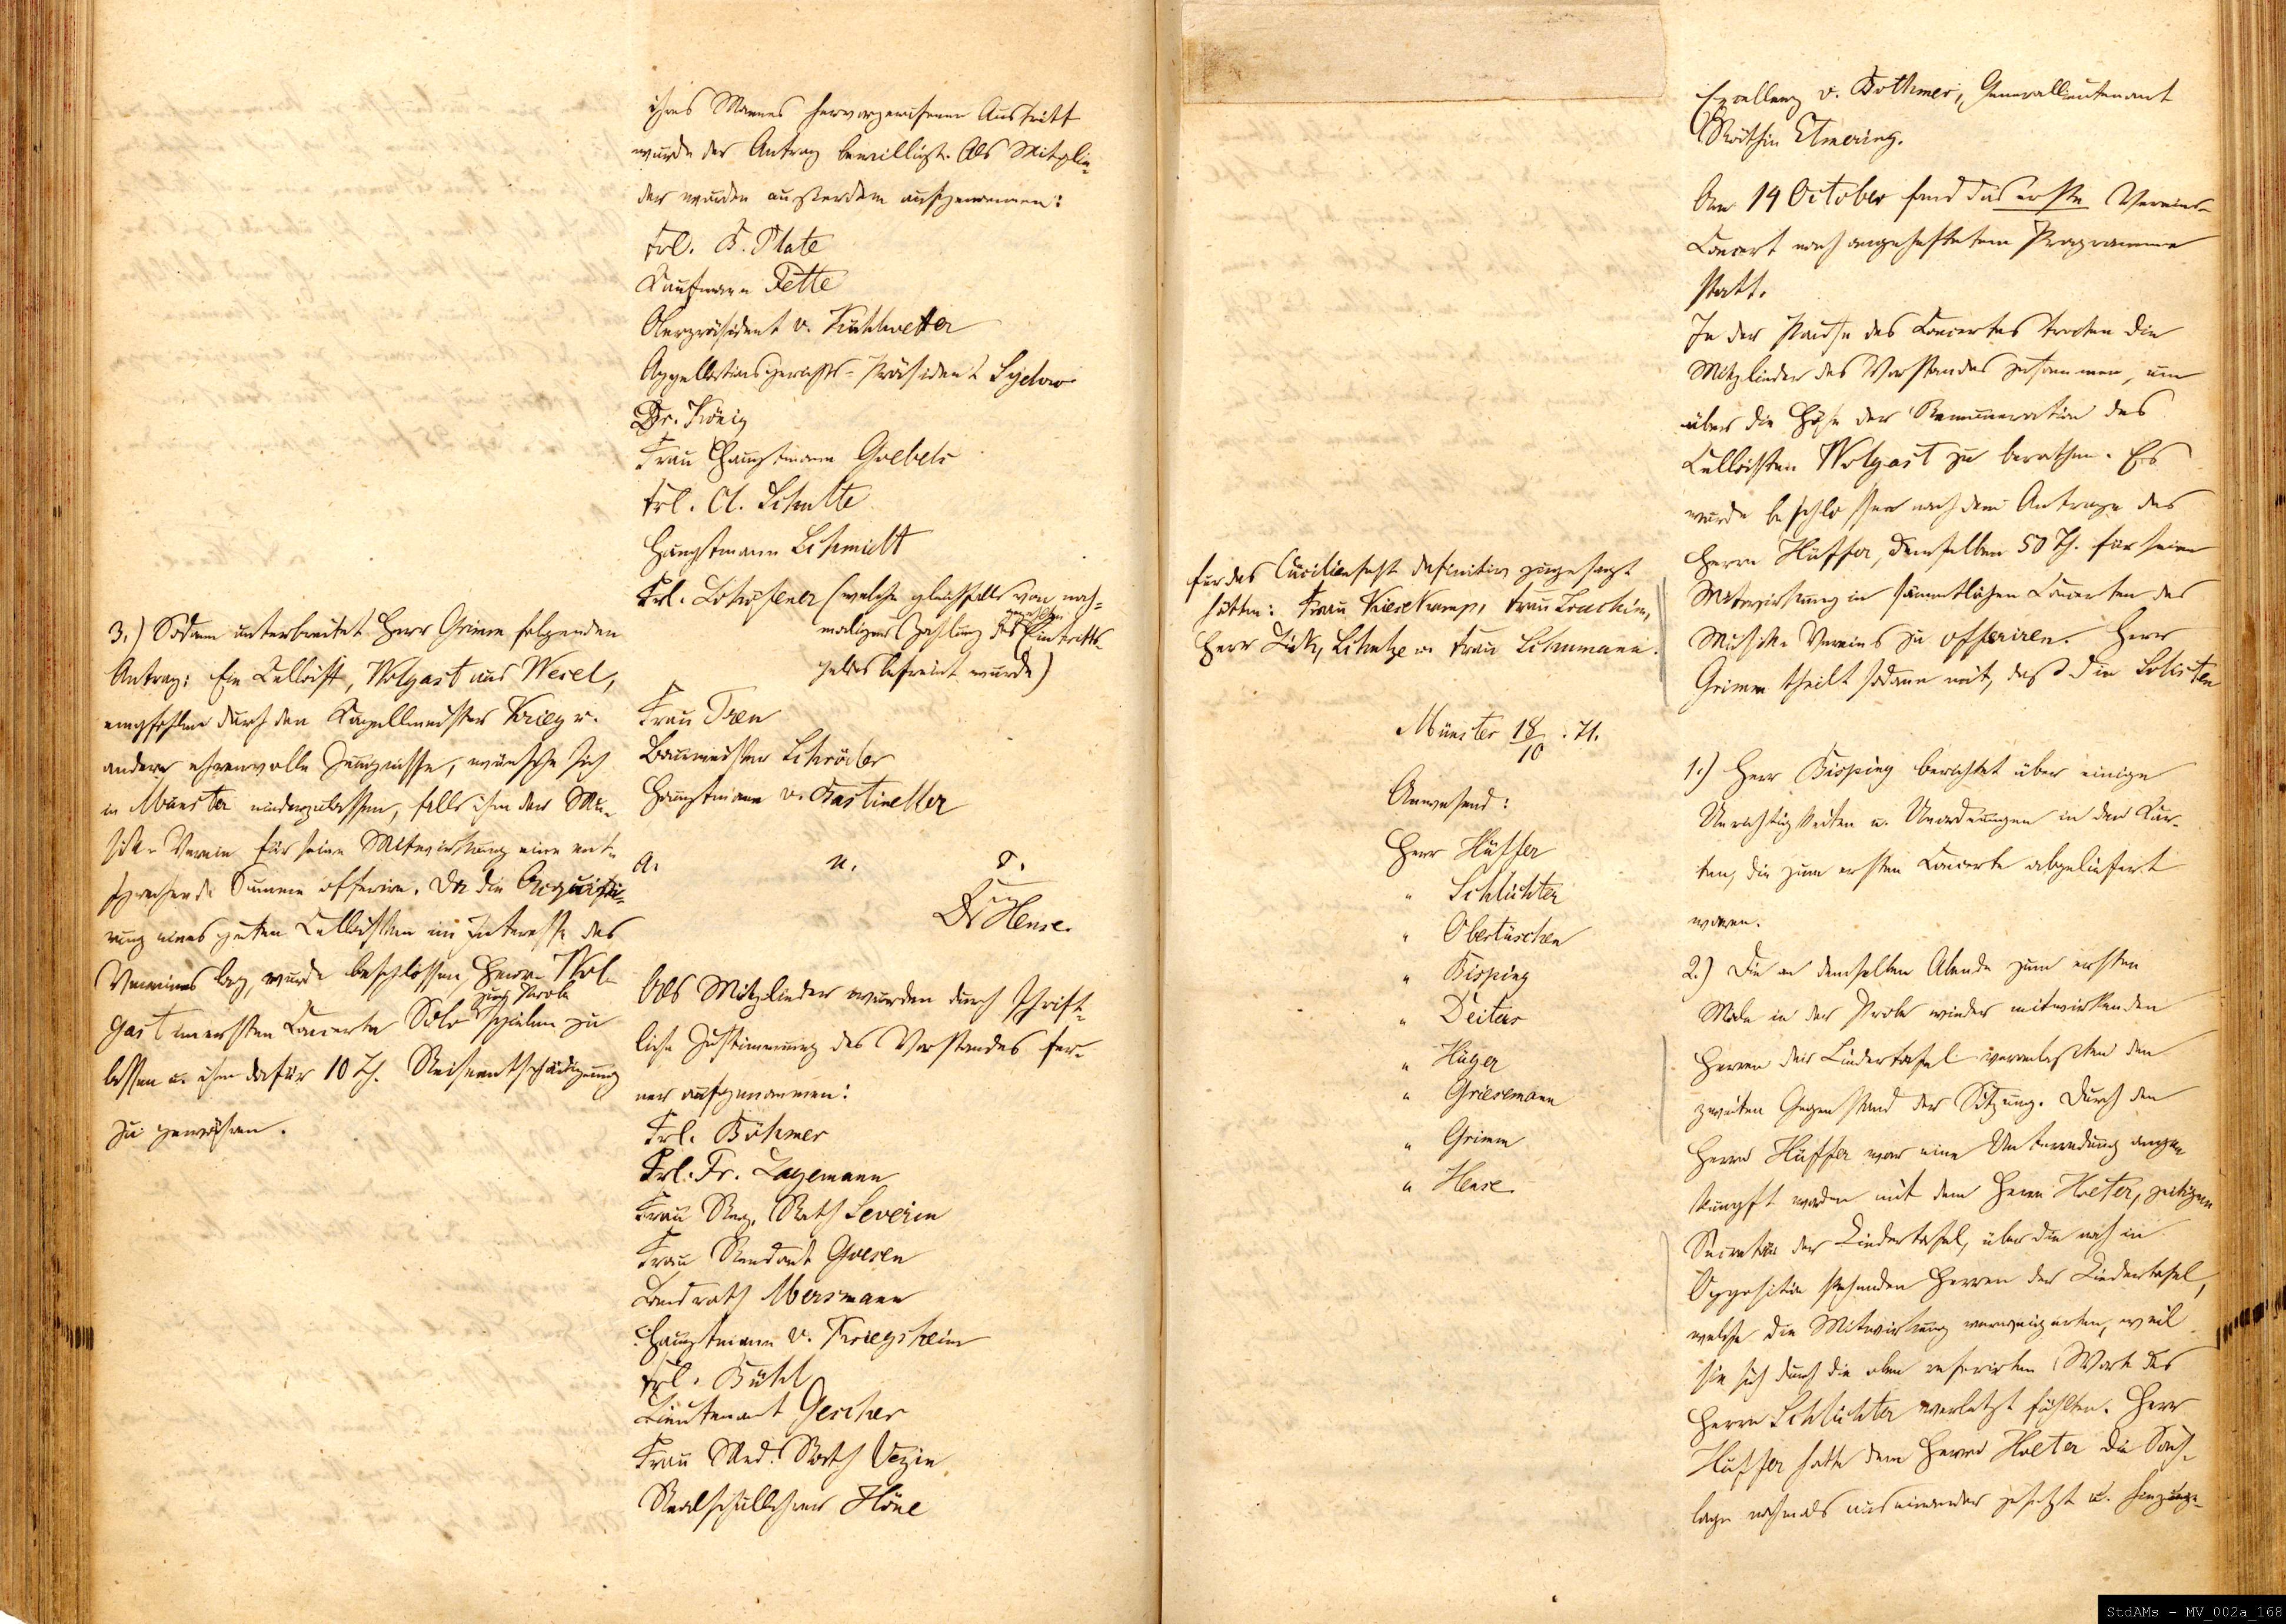 ihres Mannes hervorgerufenen Austritt
wurde der Antrag bewilligt. Als Mitglie-
der wurden außerdem aufgenommen:
Frl. B. Plate
Kaufmann Fette
Oberpräsident v. Kühlwetter
Appellationsgerichts-Präsident Sydow
Dr. König
Frau Hauptmann Goebels
Frl. Cl. Schulte
Hauptmann Schmidt
Frl. (welche gleichfalls von noch-
maliger Zahlung des Eintritts-
geldes befreit wurde)
Frau Tren
Baumeister Schröder
Hauptmann v. Bastineller
3.) Sodann unterbreitet Herr Grimm folgenden
Antrag: Ein Cellist, Wolgast aus Wesel,
empfohlen durch den Kapellmeister Krieg u.
andere ehrenvolle Zeugnisse, wünsche sich
in Münster niederzulassen, falls ihm der Mu-
sik-Verein für seine Mitwirkung eine ent-
sprechende Summe offerire. Da die Acquiri-
rung eines guten Cellisten im Interesse des
Vereines lag, wurde beschlossen, Herrn Wol-
gast im ersten Concerte Solo zur Probe spielen zu
lassen u. ihm dafür 10 Th. Reiseentschädigung
zu gewähren.
a. u. s.
Dr Hense.
Als Mitglieder wurden durch schrift-
liche Zustimmung des Vorstandes fer-
ner aufgenommen:
Frl. Böhmer
Frl. Fr. Lagemann
Frau Reg. Rath Severin
Frau Rendant Goesen
Landrath Mersmann
Hauptmann v. Kriegsheim
Frl. Bühl
Lieutenant Gescher
Frau Med. Rath Vezin
Realschullehrer Höne
Excellenz v. Bothmer, Generallieutenant
Räthin Elmering.
Am 14 October fand das erste Vereins-
Concert nach angeheftetem Programme
statt.
In der Pause des Concertes traten die
Mitglieder des Vorstandes zusammen, um
über die Höhe der Remuneration des
Cellisten Wolgast zu berathen. Es
wurde beschlossen nach dem Antrage des
Herrn Hüffer, demselben 50 Th. für seine
Mitwirkung in sämmtlichen Concerten des
Musik-Vereins zu offeriren. Herr
Grimm theilt sodann mit, daß die Solisten
für das Cäcilienfest definitiv zugesagt
hätten: Frau Kiesekamp, Frau Joachim,
Herr Schulze u. Frau Schumann.
Münster 18/10. 71.
Anwesend:
Herr Hüffer
" Schlichter
" Obertüschen
" Bisping
" Deiters
" Hüger
" Griesemann
" Grimm
" Hense.
1.) Herr Bisping berichtet über einige
Unrichtigkeiten u. Unordnungen in den Kar-
ten, die zum ersten Concerte abgeliefert
waren.
2.) Die an demselben Abende zum ersten
Male in der Probe wieder mitwirkenden
Herren der Liedertafel veranlaßten den
zweiten Gegenstand der Sitzung. Durch den
Herrn Hüffer war eine Unterredung ange-
knüpft worden mit dem Herrn Hoeter, jetzigem
Secretär der Liedertafel, über die noch in
Opposition stehenden Herren der Liedertafel,
welche die Mitwirkung verweigerten, weil
sie sich durch die oben referirten Worte des
Herrn Schlichter verletzt fühlten. Herr
Hüffer hatte dem Herrn Hoeter die Sach-
lage nochmals auseinander gesetzt u. hinzuge-
StdAMs - MV_002a_168